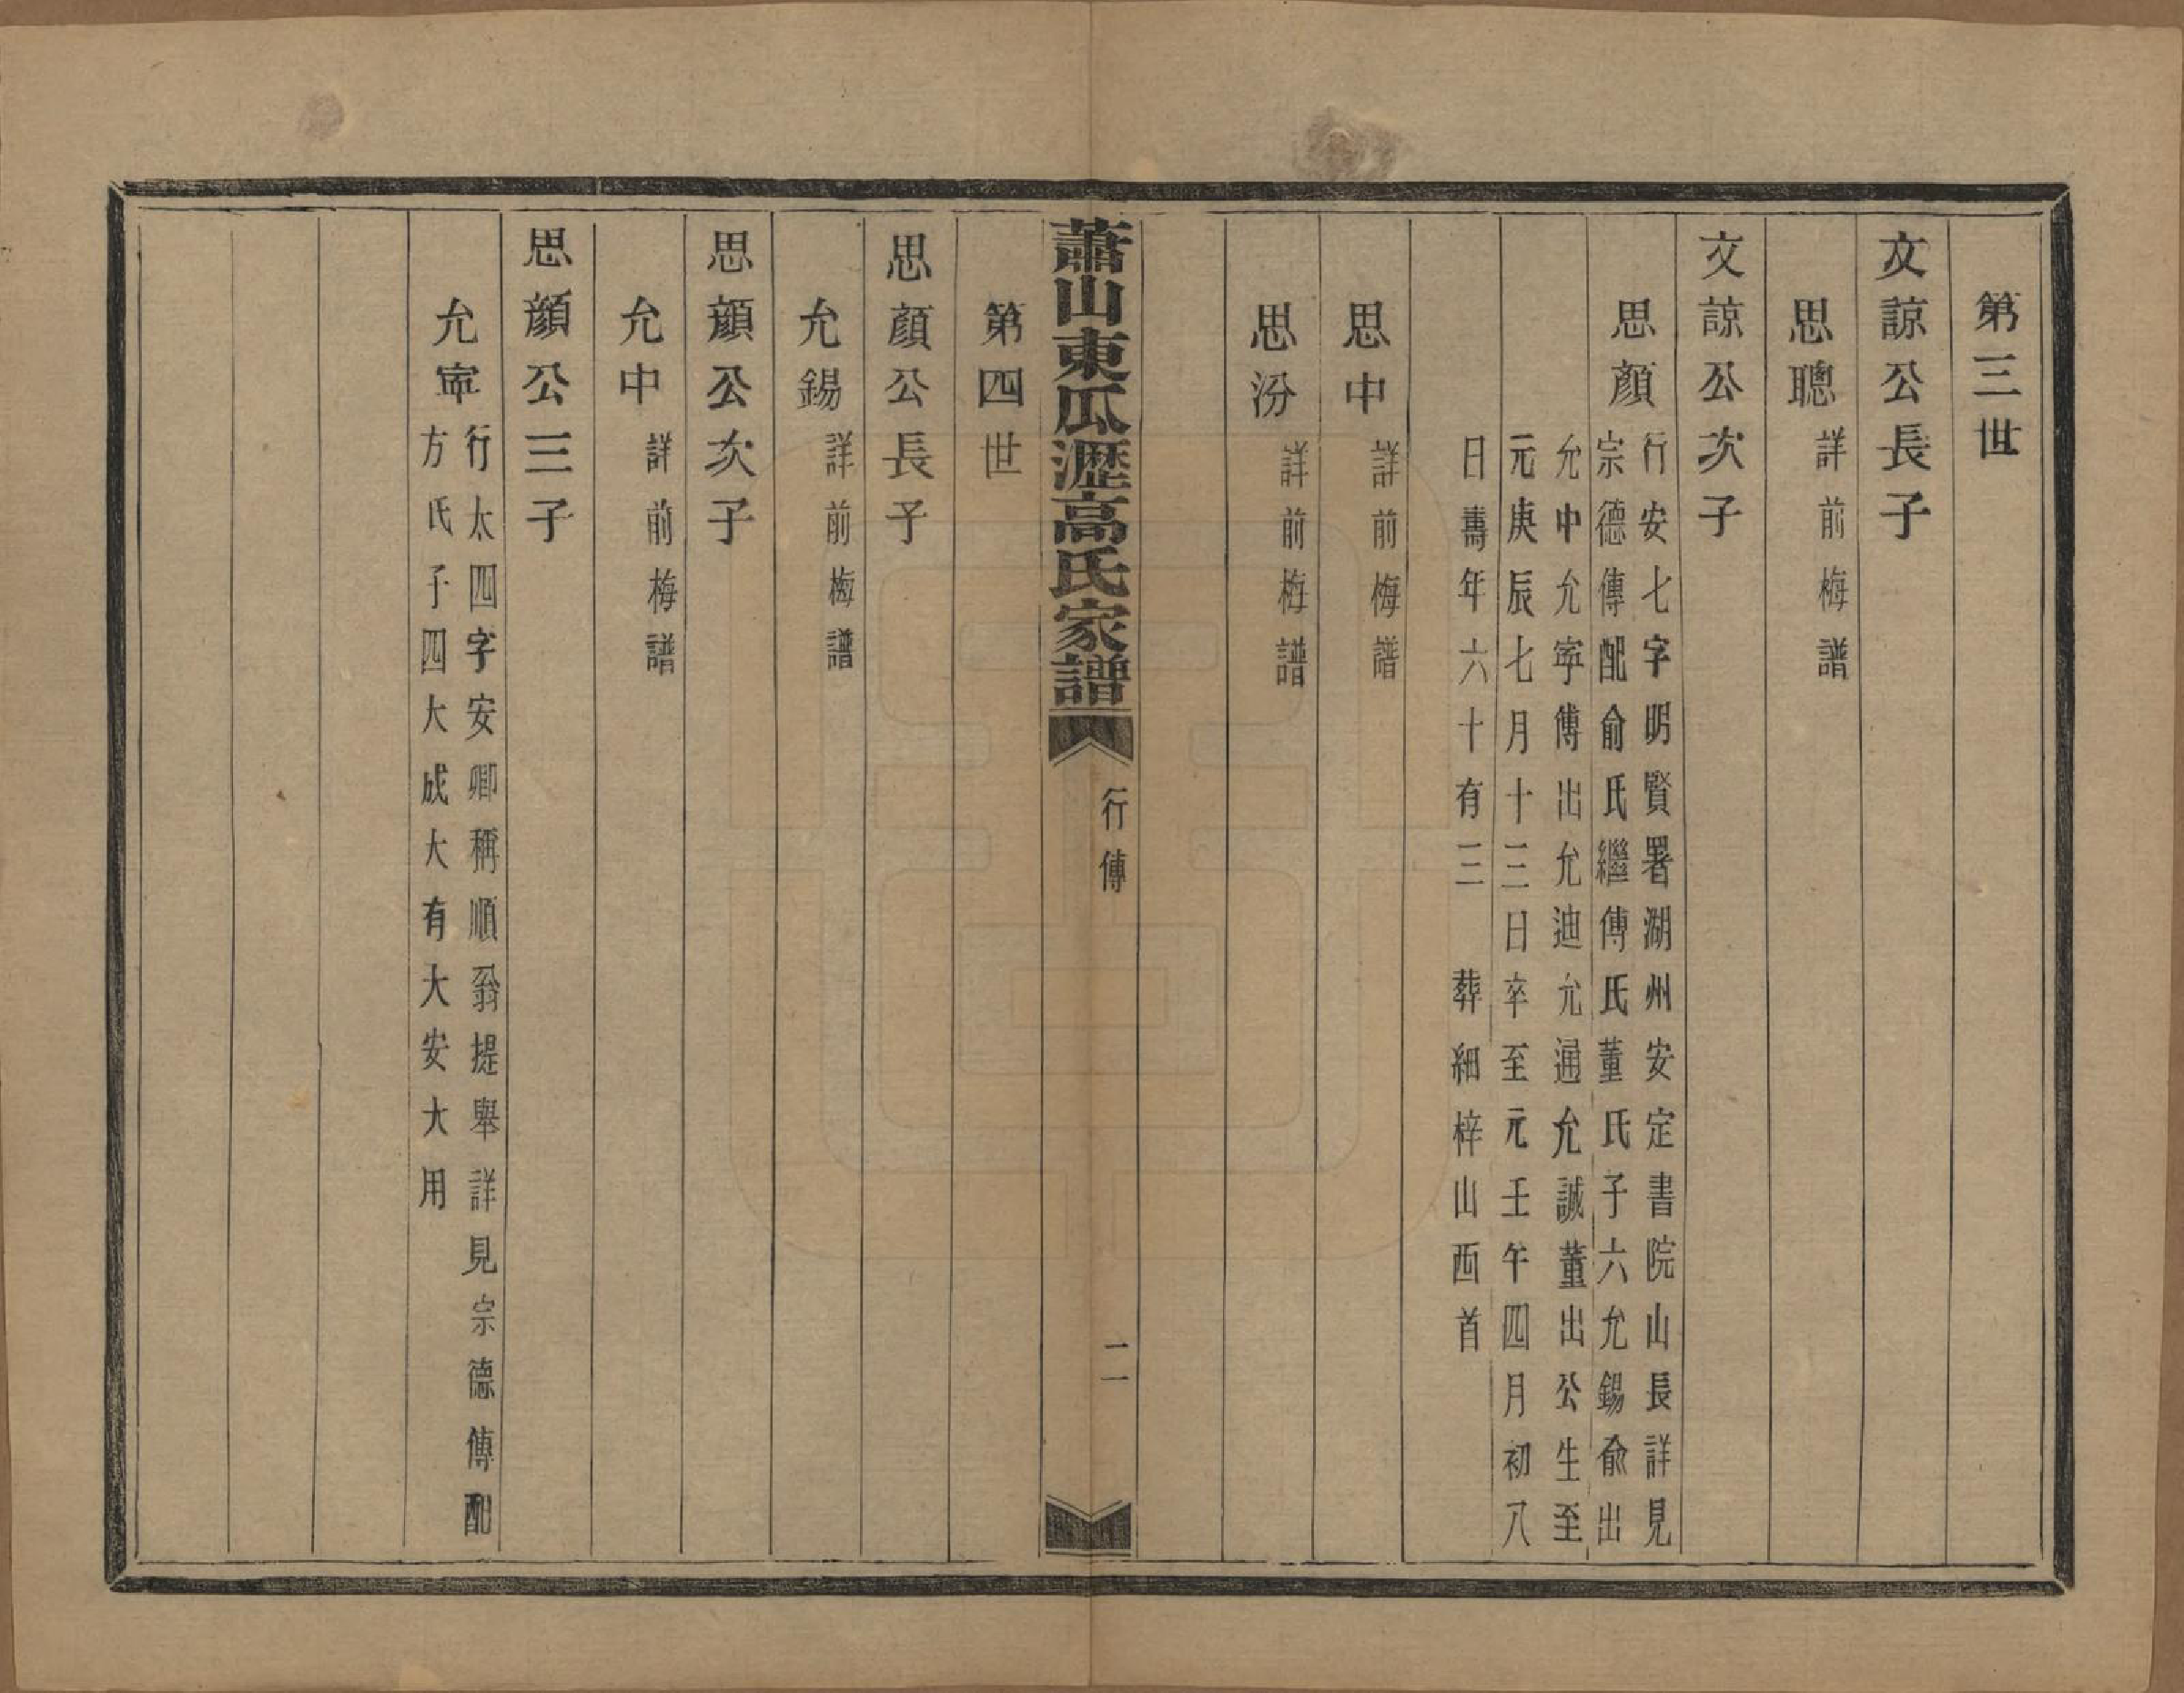 第三世
文諒公長子
思聰詳前梅譜
文諒公次子
思顏行安七字明賢署湖州安定書院山長詳見
宗德傳配俞氏繼傅氏董氏子六允錫俞出
允中允寧傅出允迪允通允誠董出公生至
元庚辰七月十三日卒至元壬午四月初八
日壽年六十有三　葬細梓山西首
思中詳前梅譜
思汾詳前梅譜
蕭山東瓜瀝高氏家譜
行傳
二
第四世
思顏公長子
允錫詳前梅譜
思顏公次子
允中詳前梅譜
思顏公三子
允寧行太四字安卿稱順翁提舉詳見宗德傳配
方氏子四大成大有大安大用